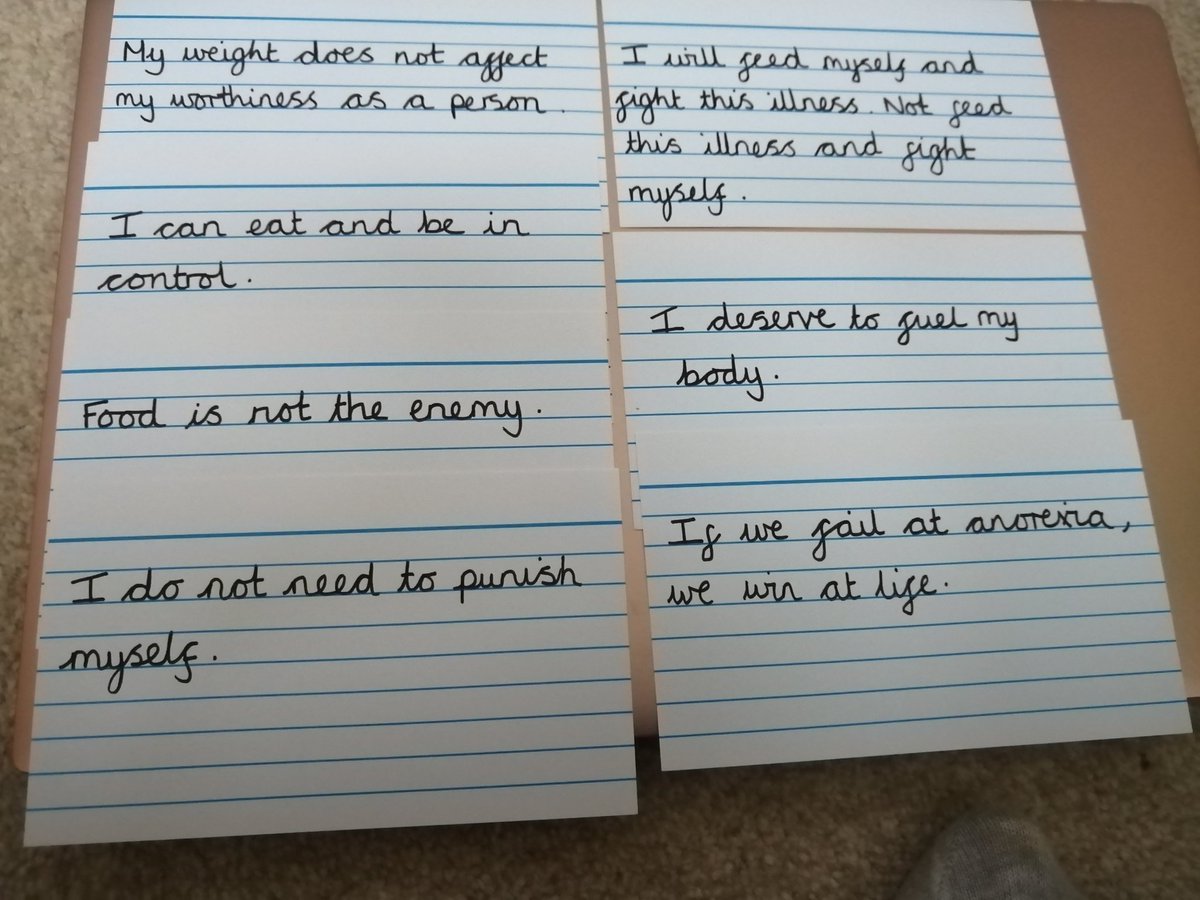 My weight does not affect
my worthiness as a person.
I can eat and be in
control.
Food is not the enemy.
I do not need to punish
myself.
I will feed myself and
fight this illness. Not feed
this illness and fight
myself.
I deserve to fuel my
body.
If we fail at anorexia,
we win at life.